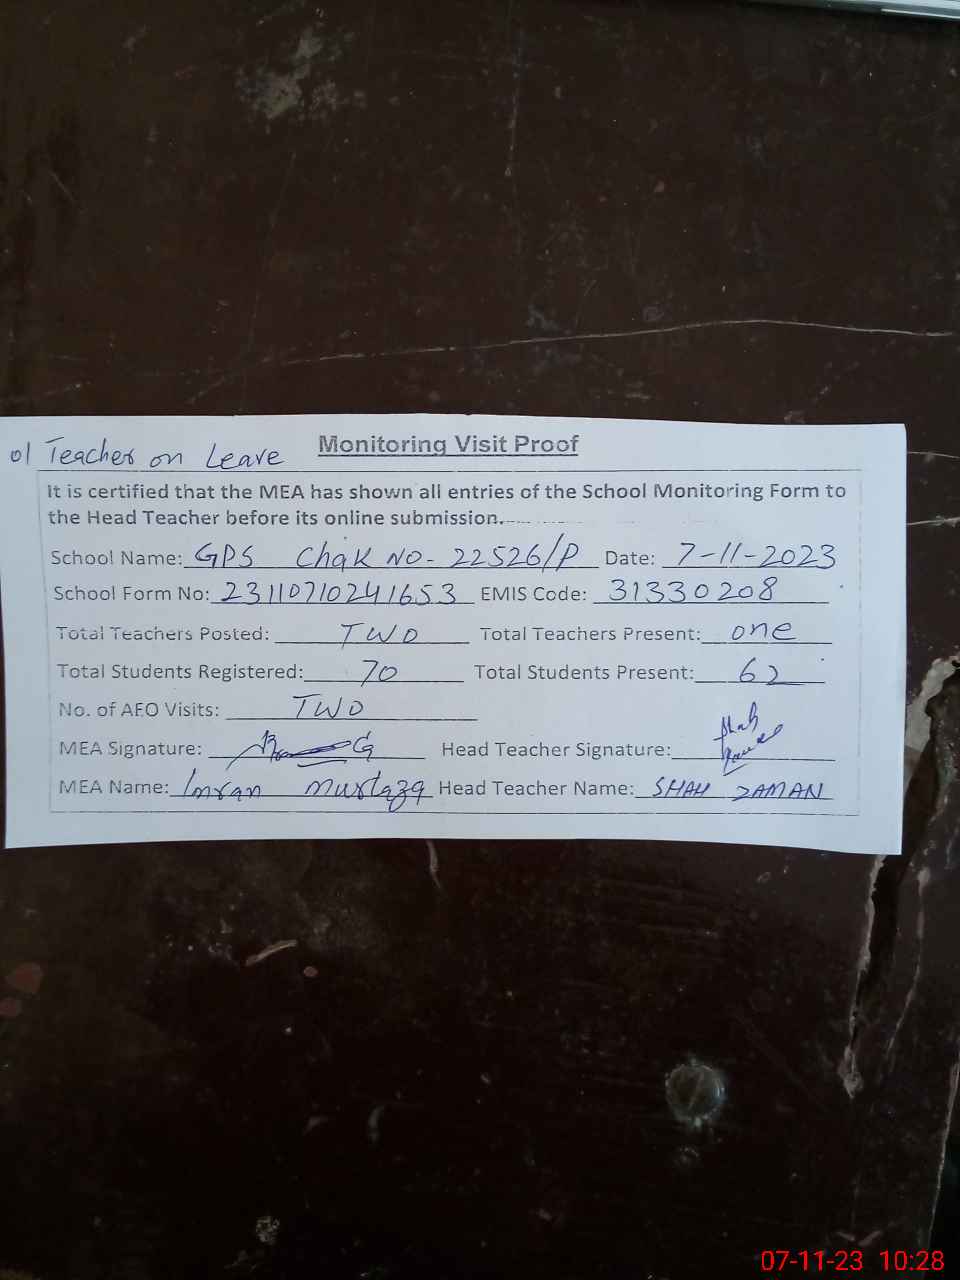 01 Teacher on Leave
Monitoring Visit Proof
It is certified that the MEA has shown all entries of the School Monitoring Form to
the Head Teacher before its online submission.
School Name: GPS Chak NO- 22526/P Date: 7-11-2023
School Form No: 23110710241653 EMIS Code: 31330208
Total Teachers Posted: TWO Total Teachers Present: one
Total Students Registered: 70 Total Students Present: 62
No. of AEO Visits: TWO
MEA Signature: Head Teacher Signature: Shah Zaman
MEA Name: Imran Murtaza Head Teacher Name: SHAH ZAMAN
07-11-23 10:28